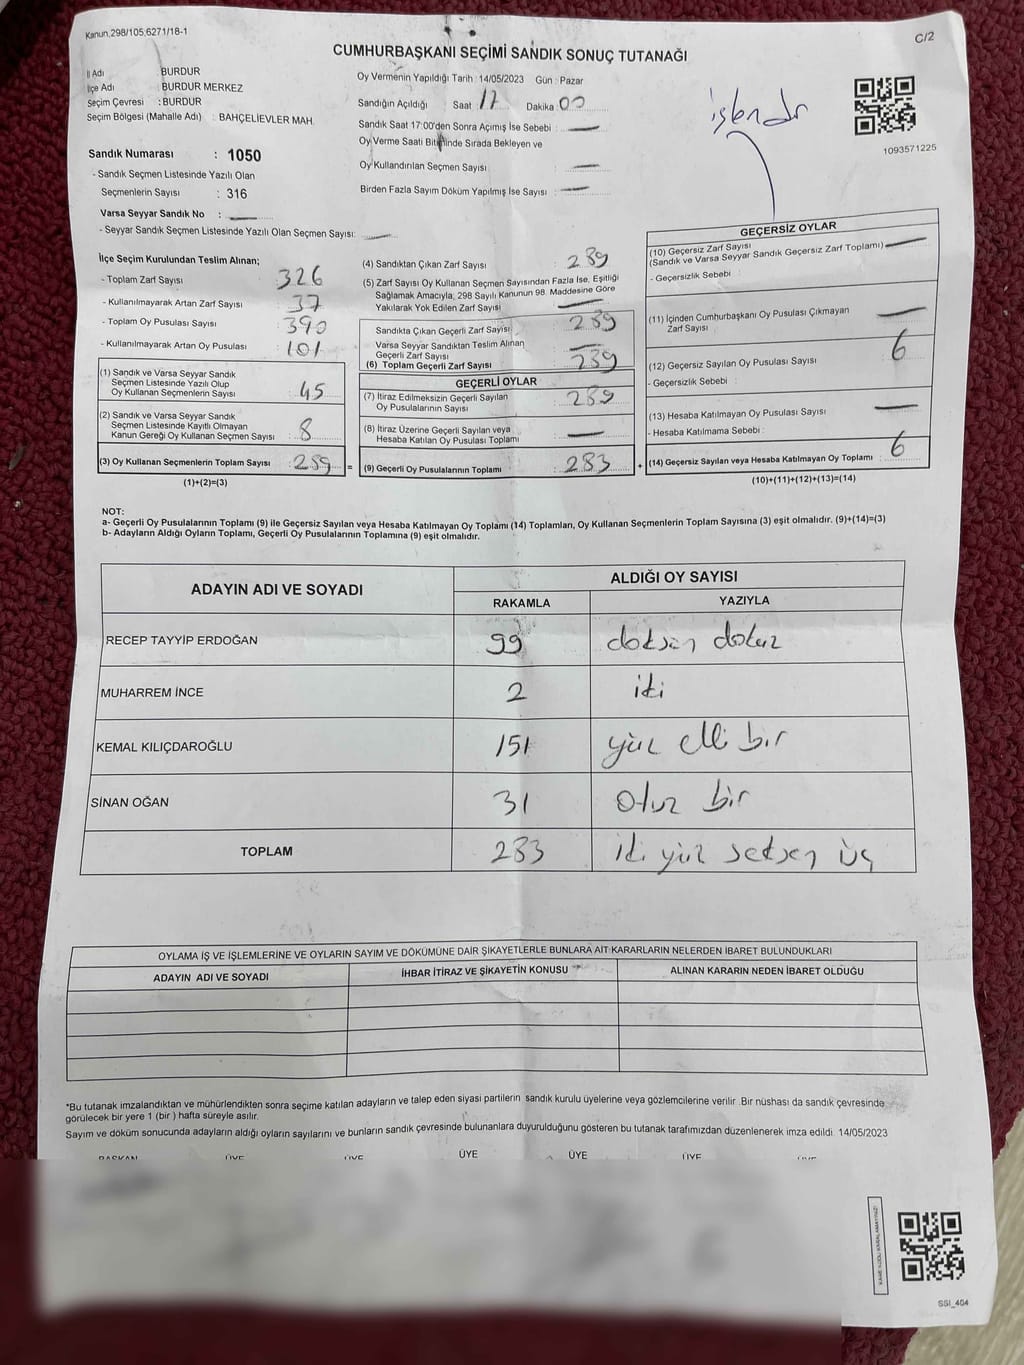 Kanun.298/105,6271/18-1
C/2
CUMHURBAŞKANI SEÇİMİ SANDIK SONUÇ TUTANAĞI
İl Adı : BURDUR
İlçe Adı : BURDUR MERKEZ
Seçim Çevresi : BURDUR
Seçim Bölgesi (Mahalle Adı) : BAHÇELİEVLER MAH.
Sandık Numarası : 1050
- Sandık Seçmen Listesinde Yazılı Olan
Seçmenlerin Sayısı : 316
Varsa Seyyar Sandık No : —
- Seyyar Sandık Seçmen Listesinde Yazılı Olan Seçmen Sayısı: —
Oy Vermenin Yapıldığı Tarih : 14/05/2023 Gün : Pazar
Sandığın Açıldığı Saat 17 Dakika : 00
Sandık Saat 17:00'den Sonra Açımış İse Sebebi : —
Oy Verme Saati Bitiminde Sırada Bekleyen ve
Oy Kullandırılan Seçmen Sayısı : —
Birden Fazla Sayım Döküm Yapılmış İse Sayısı : —
işlendi
1093571225
İlçe Seçim Kurulundan Teslim Alınan;
- Toplam Zarf Sayısı : 326
- Kullanılmayarak Artan Zarf Sayısı : 37
- Toplam Oy Pusulası Sayısı : 390
- Kullanılmayarak Artan Oy Pusulası : 101
(1) Sandık ve Varsa Seyyar Sandık
Seçmen Listesinde Yazılı Olup
Oy Kullanan Seçmenlerin Sayısı : 45
(2) Sandık ve Varsa Seyyar Sandık
Seçmen Listesinde Kayıtlı Olmayan
Kanun Gereği Oy Kullanan Seçmen Sayısı : 8
(3) Oy Kullanan Seçmenlerin Toplam Sayısı : 289 =
(1)+(2)=(3)
(4) Sandıktan Çıkan Zarf Sayısı 289
(5) Zarf Sayısı Oy Kullanan Seçmen Sayısından Fazla İse, Eşitliği
Sağlamak Amacıyla, 298 Sayılı Kanunun 98. Maddesine Göre
Yakılarak Yok Edilen Zarf Sayısı : —
Sandıkta Çıkan Geçerli Zarf Sayısı : 289
Varsa Seyyar Sandıktan Teslim Alınan
Geçerli Zarf Sayısı : —
(6) Toplam Geçerli Zarf Sayısı : 289
GEÇERLİ OYLAR
(7) İtiraz Edilmeksizin Geçerli Sayılan
Oy Pusulalarının Sayısı : 289
(8) İtiraz Üzerine Geçerli Sayılan veya
Hesaba Katılan Oy Pusulası Toplamı : —
(9) Geçerli Oy Pusulalarının Toplamı : 283 +
GEÇERSİZ OYLAR
(10) Geçersiz Zarf Sayısı
(Sandık ve Varsa Seyyar Sandık Geçersiz Zarf Toplamı) —
- Geçersizlik Sebebi :
(11) İçinden Cumhurbaşkanı Oy Pusulası Çıkmayan
Zarf Sayısı : —
(12) Geçersiz Sayılan Oy Pusulası Sayısı : 6
- Geçersizlik Sebebi :
(13) Hesaba Katılmayan Oy Pusulası Sayısı : —
- Hesaba Katılmama Sebebi :
(14) Geçersiz Sayılan veya Hesaba Katılmayan Oy Toplamı : 6
(10)+(11)+(12)+(13)=(14)
NOT:
a- Geçerli Oy Pusulalarının Toplamı (9) ile Geçersiz Sayılan veya Hesaba Katılmayan Oy Toplamı (14) Toplamları, Oy Kullanan Seçmenlerin Toplam Sayısına (3) eşit olmalıdır. (9)+(14)=(3)
b- Adayların Aldığı Oyların Toplamı, Geçerli Oy Pusulalarının Toplamına (9) eşit olmalıdır.
ADAYIN ADI VE SOYADI ALDIĞI OY SAYISI
RAKAMLA YAZIYLA
RECEP TAYYİP ERDOĞAN 99 doksan dokuz
MUHARREM İNCE 2 iki
KEMAL KILIÇDAROĞLU 151 yüz elli bir
SİNAN OĞAN 31 Otuz bir
TOPLAM 283 iki yüz seksen üç
OYLAMA İŞ VE İŞLEMLERİNE VE OYLARIN SAYIM VE DÖKÜMÜNE DAİR ŞİKAYETLERLE BUNLARA AİT KARARLARIN NELERDEN İBARET BULUNDUKLARI
ADAYIN ADI VE SOYADI İHBAR İTİRAZ VE ŞİKAYETİN KONUSU ALINAN KARARIN NEDEN İBARET OLDUĞU
*Bu tutanak imzalandıktan ve mühürlendikten sonra seçime katılan adayların ve talep eden siyasi partilerin sandık kurulu üyelerine veya gözlemcilerine verilir .Bir nüshası da sandık çevresinde
görülecek bir yere 1 (bir ) hafta süreyle asılır.
Sayım ve döküm sonucunda adayların aldığı oyların sayılarını ve bunların sandık çevresinde bulunanlara duyurulduğunu gösteren bu tutanak tarafımızdan düzenlenerek imza edildi. 14/05/2023
BAŞKAN ÜYE ÜYE ÜYE ÜYE ÜYE
SSI_404